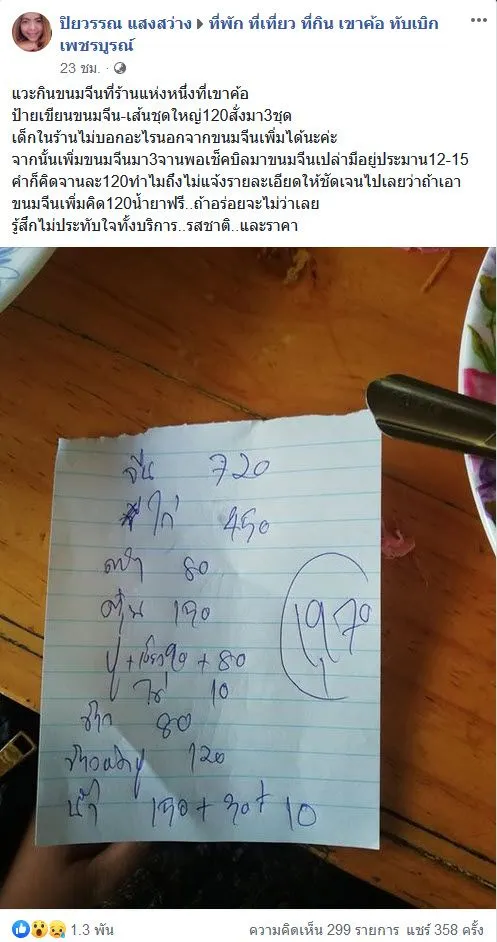 ปิยวรรณ แสงสว่าง ▸ ที่พัก ที่เที่ยว ที่กิน เขาค้อ ทับเบิก
เพชรบูรณ์
23 ชม. ·
แวะกินขนมจีนที่ร้านแห่งหนึ่งที่เขาค้อ
ป้ายเขียนขนมจีน-เส้นชุดใหญ่120สั่งมา3ชุด
เด็กในร้านไม่บอกอะไรนอกจากขนมจีนเพิ่มได้นะค่ะ
จากนั้นเพิ่มขนมจีนมา3จานพอเช็คบิลมาขนมจีนเปล่ามีอยู่ประมาน12-15
คำก็คิดจานละ120ทำไมถึงไม่แจ้งรายละเอียดให้ชัดเจนไปเลยว่าถ้าเอา
ขนมจีนเพิ่มคิด120น้ำยาฟรี..ถ้าอร่อยจะไม่ว่าเลย
รู้สึกไม่ประทับใจทั้งบริการ..รสชาติ..และราคา
จีน 720
ไก่ 450
ตำ 80
ตุ๋น 150
ปู + + 80
ไข่ 10
ข้าว 80
ข้าวผัดปู 120
น้ำ 150 + 30 + 10
1970
1.3 พัน
ความคิดเห็น 299 รายการ แชร์ 358 ครั้ง